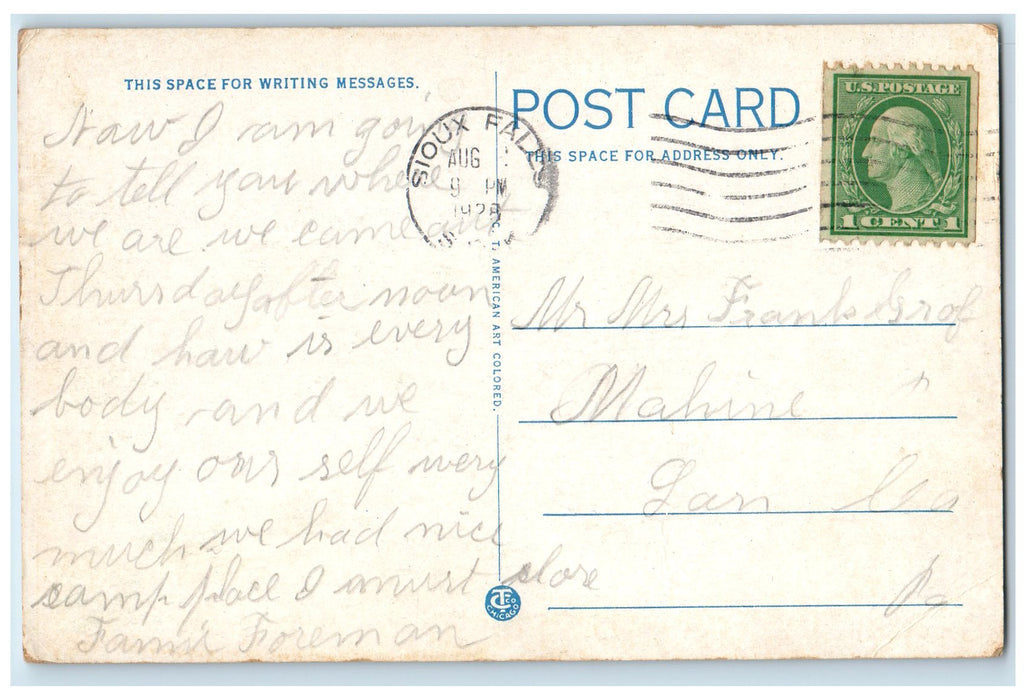 THIS SPACE FOR WRITING MESSAGES.
Naw I am goin
to tell you where
we are we came out
Thursday after noon
and haw is every
body and we
enjoy our self wery
much we had nice
camp place I must close
Foreman
SIOUX FALLS
AUG
9 PM
POST CARD
THIS SPACE FOR ADDRESS ONLY.
U.S. POSTAGE
1 CENT 1
C. T. AMERICAN ART COLORED.
Mr Mrs Frank Grof
Mahine
Lan Co
Pa
CT CO
CHICAGO